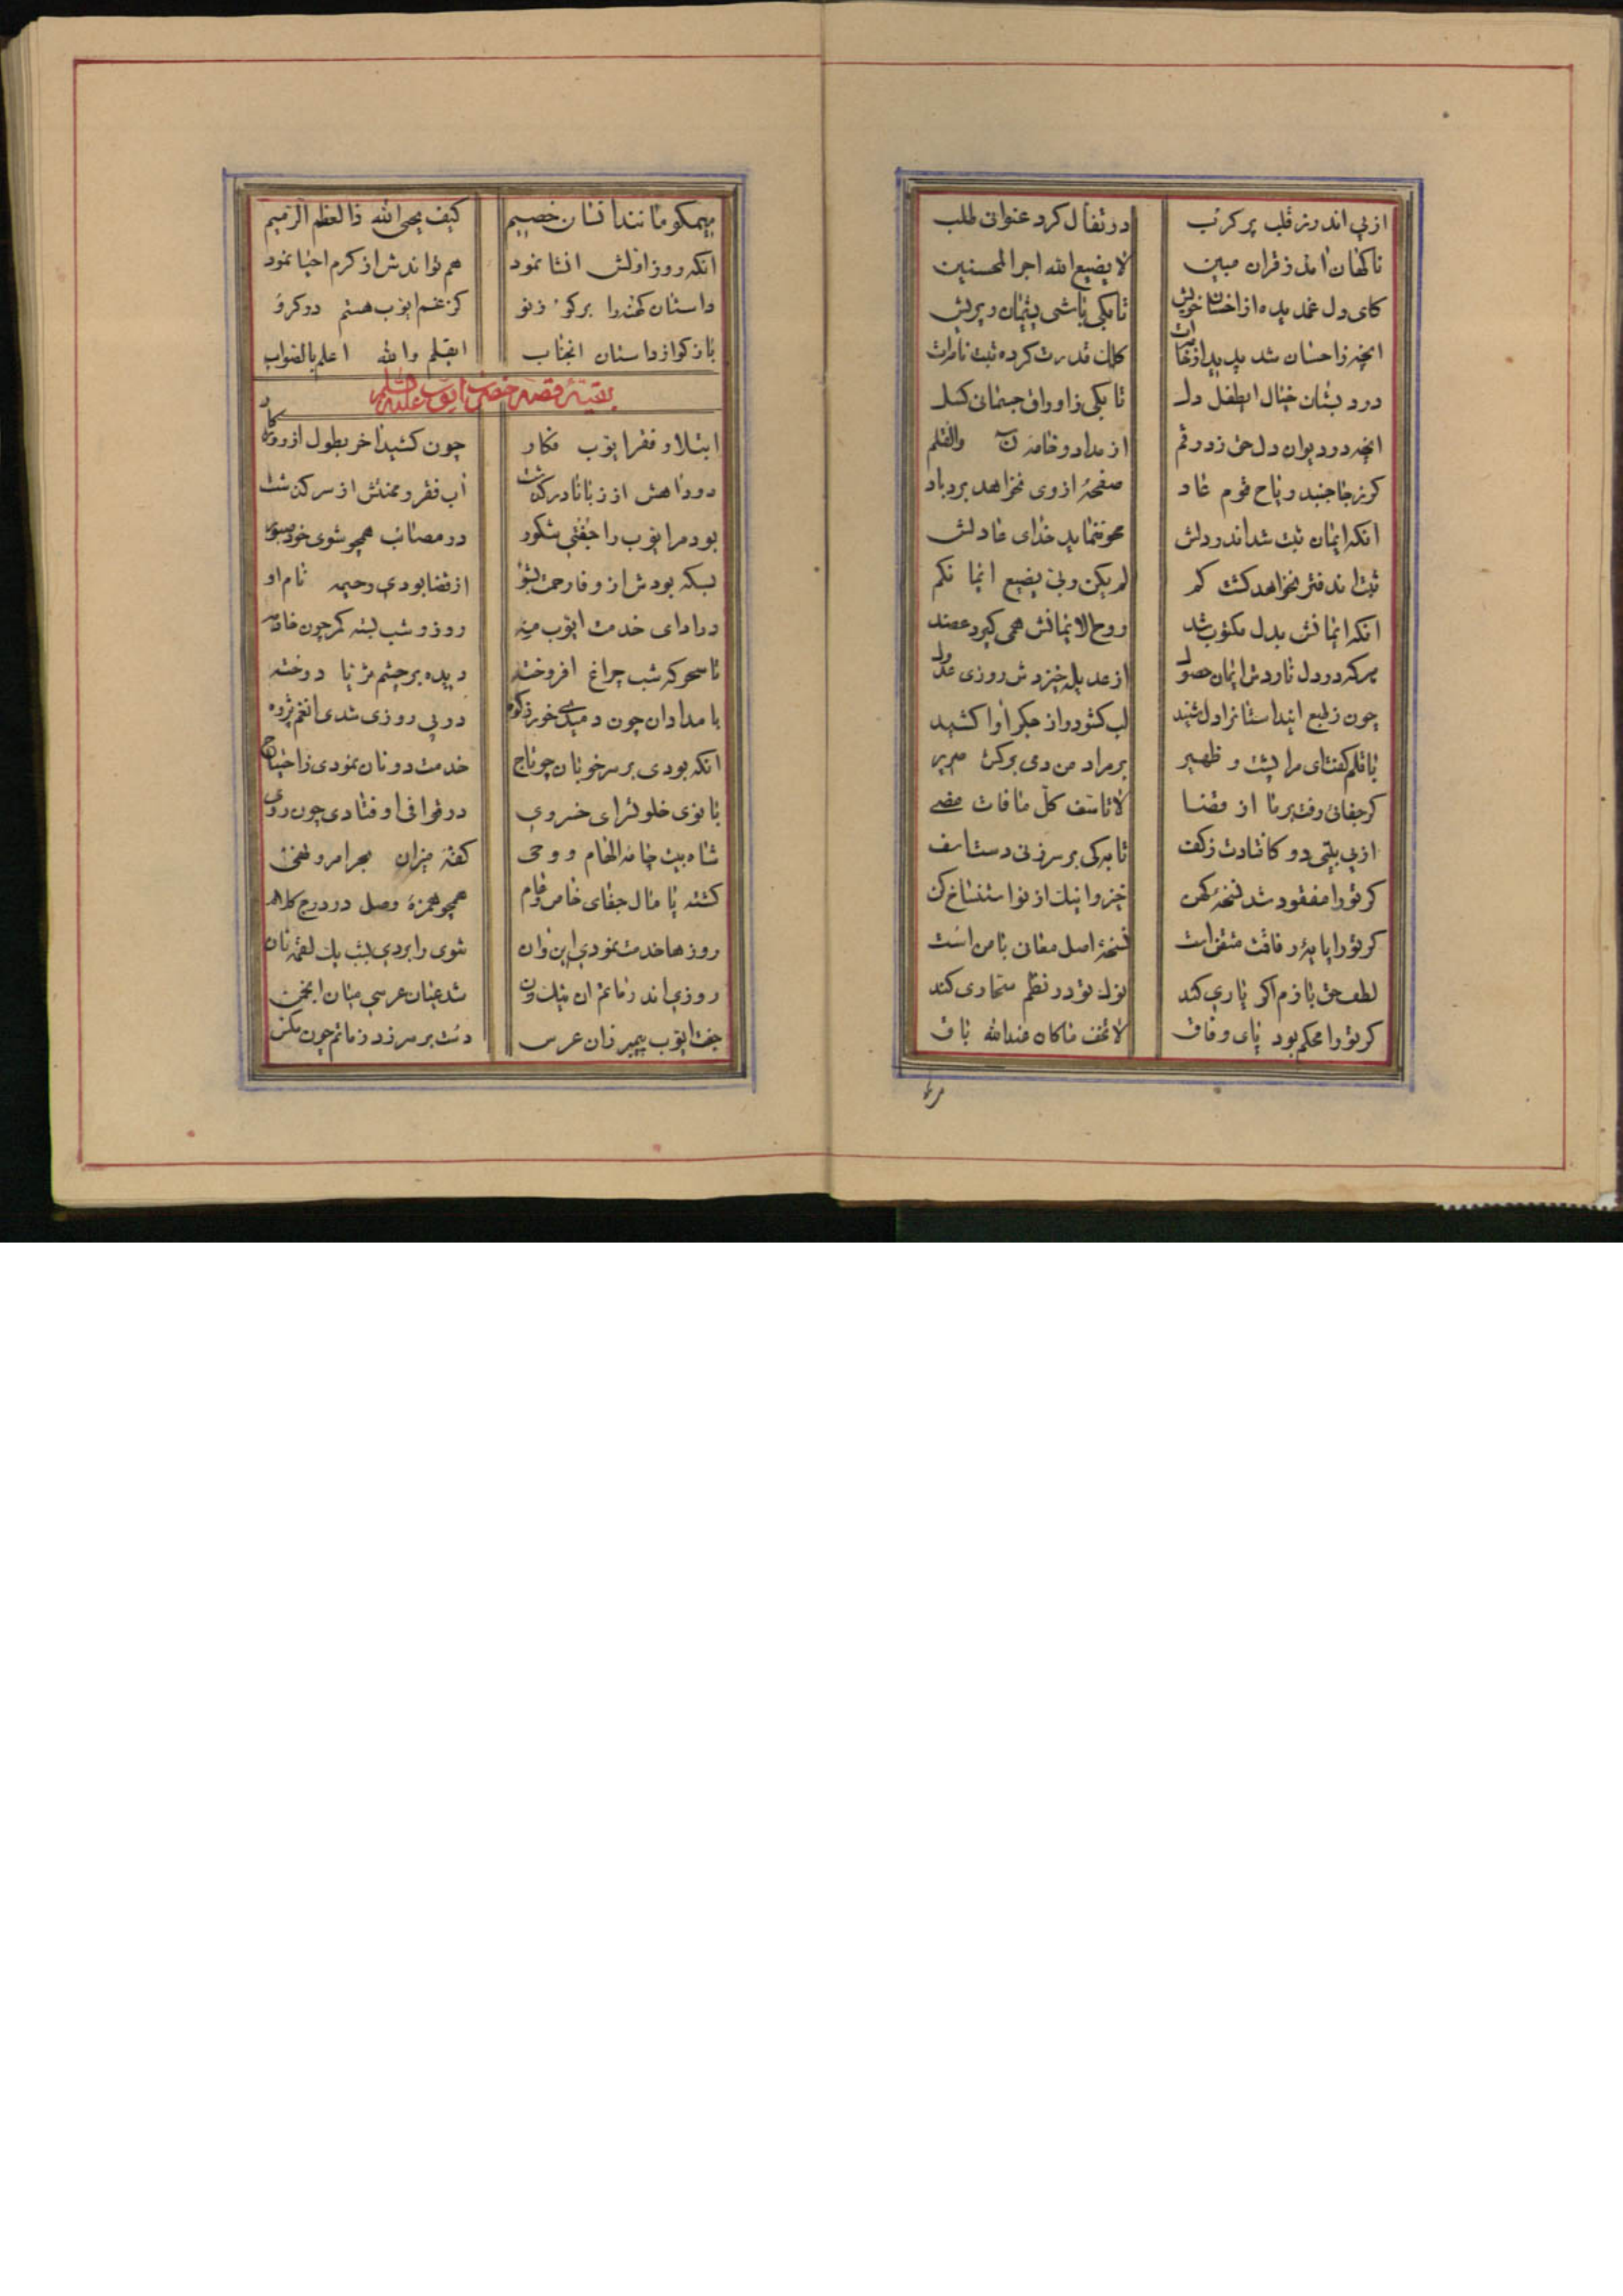 از پی اندرز قلب پر کرب در تفأل کرد عنوان طلب
ناکهان آمد ز قران مبین لا یضیع الله اجر المحسنین
کای دل غمدیده از احسان خویش تا بکی باشی پشیمان و پریش
انچه ز احسان شد پدید از خامه‌ات کلک قدرت کرده ثبت نامه‌ات
در دبستان خیال ای طفل دل تا بکی ز اوراق جسمانی کسل
انچه در دیوان دل حق زد رقم از مداد و خامه ن والقلم
کر ز جا جنبد ریاح قوم عاد صفحهٔ از وی نخواهد برد باد
انکه ایمان ثبت شد اندر دلش محو ننماید خدای عادلش
ثبت این دفتر نخواهد کشت کم لم یکن ربی یضیع ایمانکم
انکه ایمانش بدل مکتوب شد روح الایمانش همی کیرد عضد
هر که در دل ناردش ایمان حصول از عدیله خیزدش روزی عدول
چون ز طبع این داستانرا دل شنید لب کشود و از جکر آوا کشید
با قلم کفت ای مرا پشت و ظهیر بر مراد من دمی برکش صریر
کر جفائی رفت بر ما از قضا لا تأسف کل ما فات مضی
از پی بیتی دو کافتادت ز کف تا بکی بر سر زنی دست اسف
کر تو را مفقود شد نسخهٔ کهن خیز و اینک از نو استنساخ کن
کر تو را پایهٔ رفاقت متقن است نسخهٔ اصل معانی با من است
لطف حق بازم اکر یاری کند نوک تو در نظم سحاری کند
کر تو را محکم بود پای وفاق لا تخف ما کان عند الله باق
مر
هیمکو مانند انسان خصیم کیف یحیی الله ذا العظم الرمیم
انکه روز اولش انشا نمود هم تواندش از کرم احیا نمود
داستان کهنه را برکو ز نو کز غم ایوب هستم در کرو
باز کو از داستان انجناب ایقلم والله اعلم بالصواب
بقیه قصه حضرت ایوب علیه السلم
ابتلا و فقر ایوب فکار چون کشید اخر بطول از روزکار
دود آهش از زبانا در کذشت آب فقر و محنتش از سر کذشت
بود مر ایوب را جفتی شکور در مصائب همچو شوی خود صبور
بسکه بودش از وفا رحمت بشو از قضا بودی رحیمه نام او
در ادای خدمت ایوب مه روز و شب بسته کمر چون خادمه
تا سحرکه شب چراغ افروخته دیده بر چشم ثریا دوخته
بامدادان چون دمیدی خور ز کوه در پی روزی شدی انغم پژوه
انکه بودی بر سر خوبان چو تاج خدمت دونان نمودی ز احتیاج
بانوی خلوتسرای خسروی در قوافی اوفتادی چون روی
شاه بیت جامه الهام و وحی کفه میزان بحر امر و نهی
کشته پامال جفای خاص و عام همچو همزهٔ وصل در درج کلام
روزها خدمت نمودی این و آن شوی را بردی بشب یک لقمه نان
روزی اندر ماتم ان نیک زن شد عیان عرسی میان انجمن
جفت ایوب پیمبر زان عرس دست بر سر زد ز ماتم چون مکس